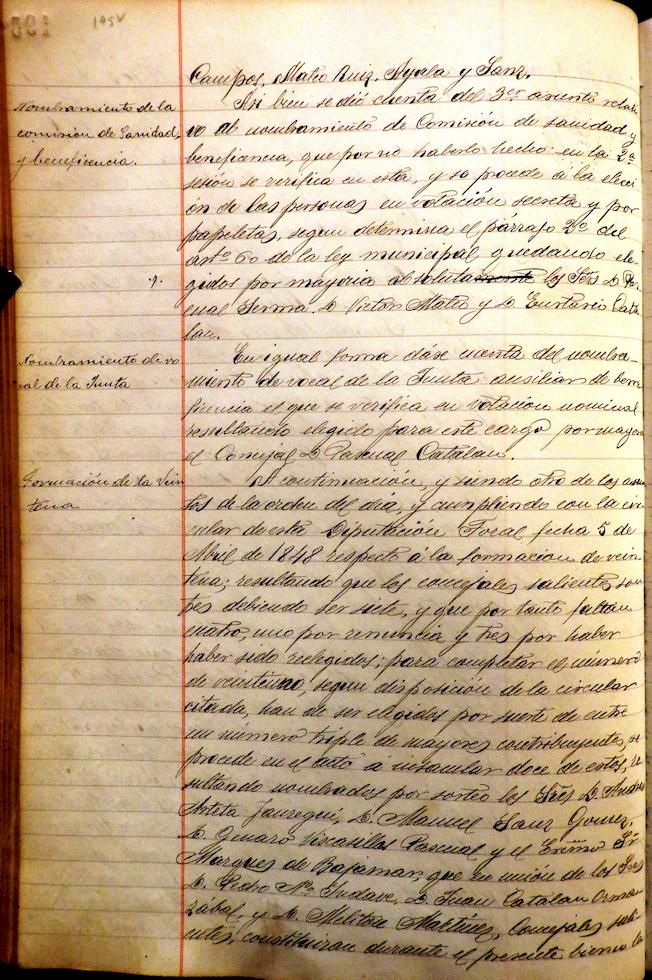 145v
Campos, Mateo Ruiz, Ayala y Sanz.
Nombramiento de la
comisión de Sanidad
y beneficencia.
Asi bien se dió cuenta del 3er asunto relati
vo al nombramiento de Comisión de sanidad y
beneficencia, que por no haberlo hecho en la 2ª
sesión se verifica en esta, y se procede á la elecci
ón de las personas en votación secreta y por
papeletas, segun determina el párrafo 2º del
artº 60 de la ley municipal quedando ele
gidos por mayoria absoluta los Sres D. Pas
cual Serma, D. Victor Mateo y D. Eustasio Cata
lan.
Nombramiento de vo
cal de la Junta
En igual forma dáse cuenta del nombra-
miento de vocal de la Junta auxiliar de bene
ficencia el que se verifica en votación nominal
resultando elegido para este cargo por mayoria
el Concejal D. Pascual Catalan.
Formación de la Vein
tena
A continuación, y siendo otro de los asun
tos de la orden del dia, y cumpliendo con la cir
cular de esta Diputación Foral fecha 5 de
Abril de 1848 respecto á la formacion de vein
tena; resultando que los concejales salientes son
tres debiendo ser siete, y que por tanto faltan
cuatro, uno por renuncia y tres por haber
haber sido reelegidos; para completar el número
de veinteno, segun disposición de la circular
citada, han de ser elegidos por suerte de entre
un numero triple de mayores contribuyentes, se
procede en el acto á insacular doce de estos, re
sultando nombrados por sorteo los Sres D. Andres
Arteta Jauregui, D. Manuel Sanz Gomez,
D. Genaro Viscasillas Pascual y el Exmo Sr
Marques de Bajamar, que en unión de los Sres
D. Pedro Mª Indave, D. Juan Catalan Orma
zábal, y D. Meliton Martinez, Concejales sali
entes, constituiran durante el presente bienio la